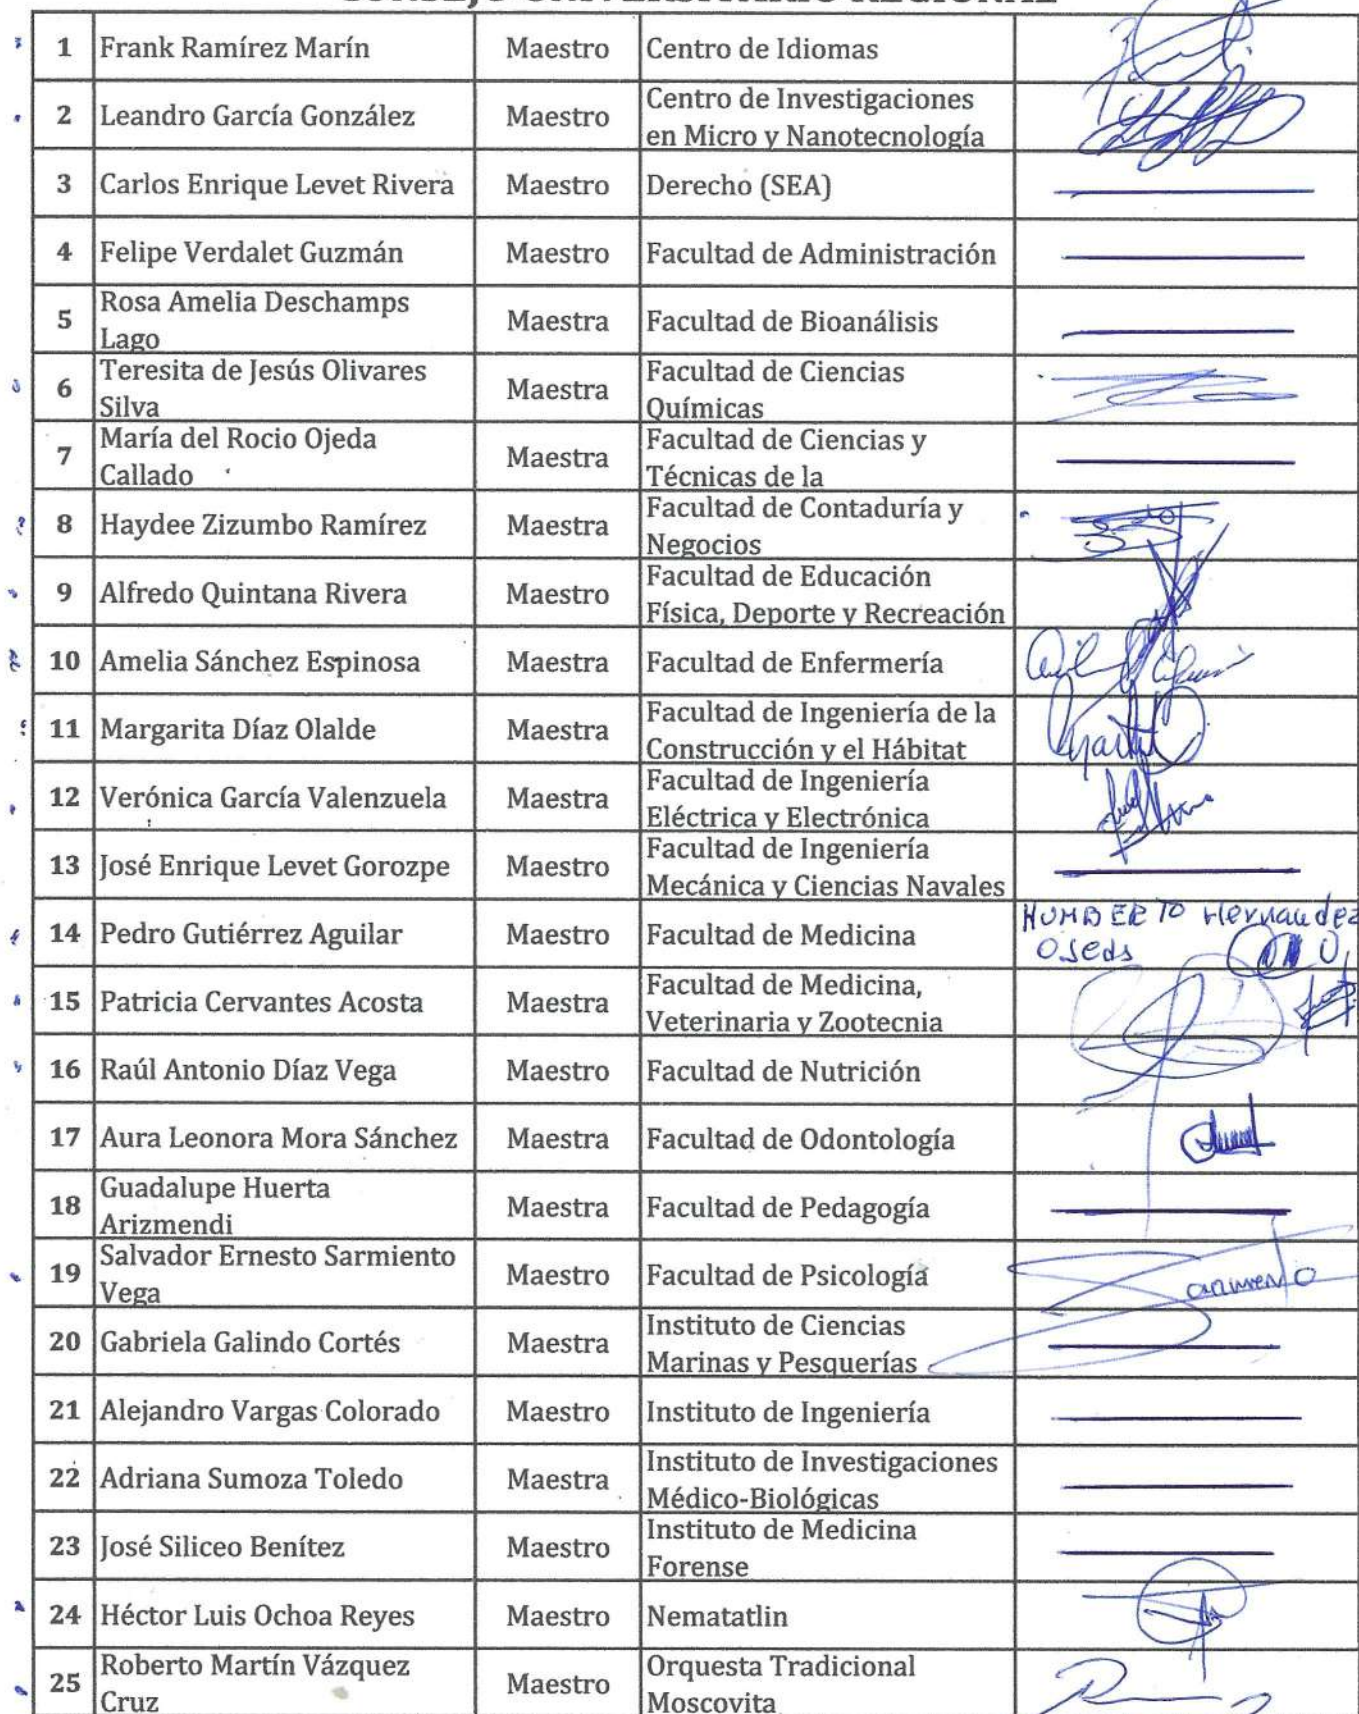 CONSEJO UNIVERSITARIO REGIONAL
1 Frank Ramírez Marín Maestro Centro de Idiomas
2 Leandro García González Maestro Centro de Investigaciones
en Micro y Nanotecnología
3 Carlos Enrique Levet Rivera Maestro Derecho (SEA)
4 Felipe Verdalet Guzmán Maestro Facultad de Administración
5 Rosa Amelia Deschamps Maestra Facultad de Bioanálisis
Lago
6 Teresita de Jesús Olivares Maestra Facultad de Ciencias
Silva Químicas
7 María del Rocio Ojeda Maestra Facultad de Ciencias y
Callado Técnicas de la
8 Haydee Zizumbo Ramírez Maestra Facultad de Contaduría y
Negocios
9 Alfredo Quintana Rivera Maestro Facultad de Educación
Física, Deporte y Recreación
10 Amelia Sánchez Espinosa Maestra Facultad de Enfermería
11 Margarita Díaz Olalde Maestra Facultad de Ingeniería de la
Construcción y el Hábitat
12 Verónica García Valenzuela Maestra Facultad de Ingeniería
Eléctrica y Electrónica
13 José Enrique Levet Gorozpe Maestro Facultad de Ingeniería
Mecánica y Ciencias Navales
14 Pedro Gutiérrez Aguilar Maestro Facultad de Medicina HUMBERTO Hernandez
15 Patricia Cervantes Acosta Maestra Facultad de Medicina,
Veterinaria y Zootecnia
16 Raúl Antonio Díaz Vega Maestro Facultad de Nutrición
17 Aura Leonora Mora Sánchez Maestra Facultad de Odontología
18 Guadalupe Huerta Maestra Facultad de Pedagogía
Arizmendi
19 Salvador Ernesto Sarmiento Maestro Facultad de Psicología
Vega
20 Gabriela Galindo Cortés Maestra Instituto de Ciencias
Marinas y Pesquerías
21 Alejandro Vargas Colorado Maestro Instituto de Ingeniería
22 Adriana Sumoza Toledo Maestra Instituto de Investigaciones
Médico-Biológicas
23 José Siliceo Benítez Maestro Instituto de Medicina
Forense
24 Héctor Luis Ochoa Reyes Maestro Nematatlin
25 Roberto Martín Vázquez Maestro Orquesta Tradicional
Cruz Moscovita